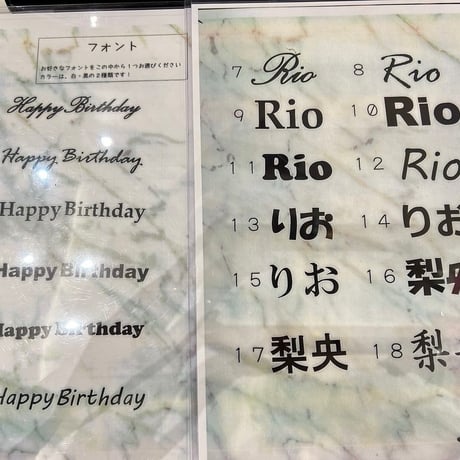 フォント
お好きなフォントをこの中から1つお選びください
カラーは、白・黒の2種類です!
Happy Birthday
Happy Birthday
Happy Birthday
Happy Birthday
Happy Birthday
Happy Birthday
7 Rio
8 Rio
9 Rio
10 Rio
11 Rio
12 Rio
13 りお
14 りお
15 りお
16 梨央
17 梨央
18 梨